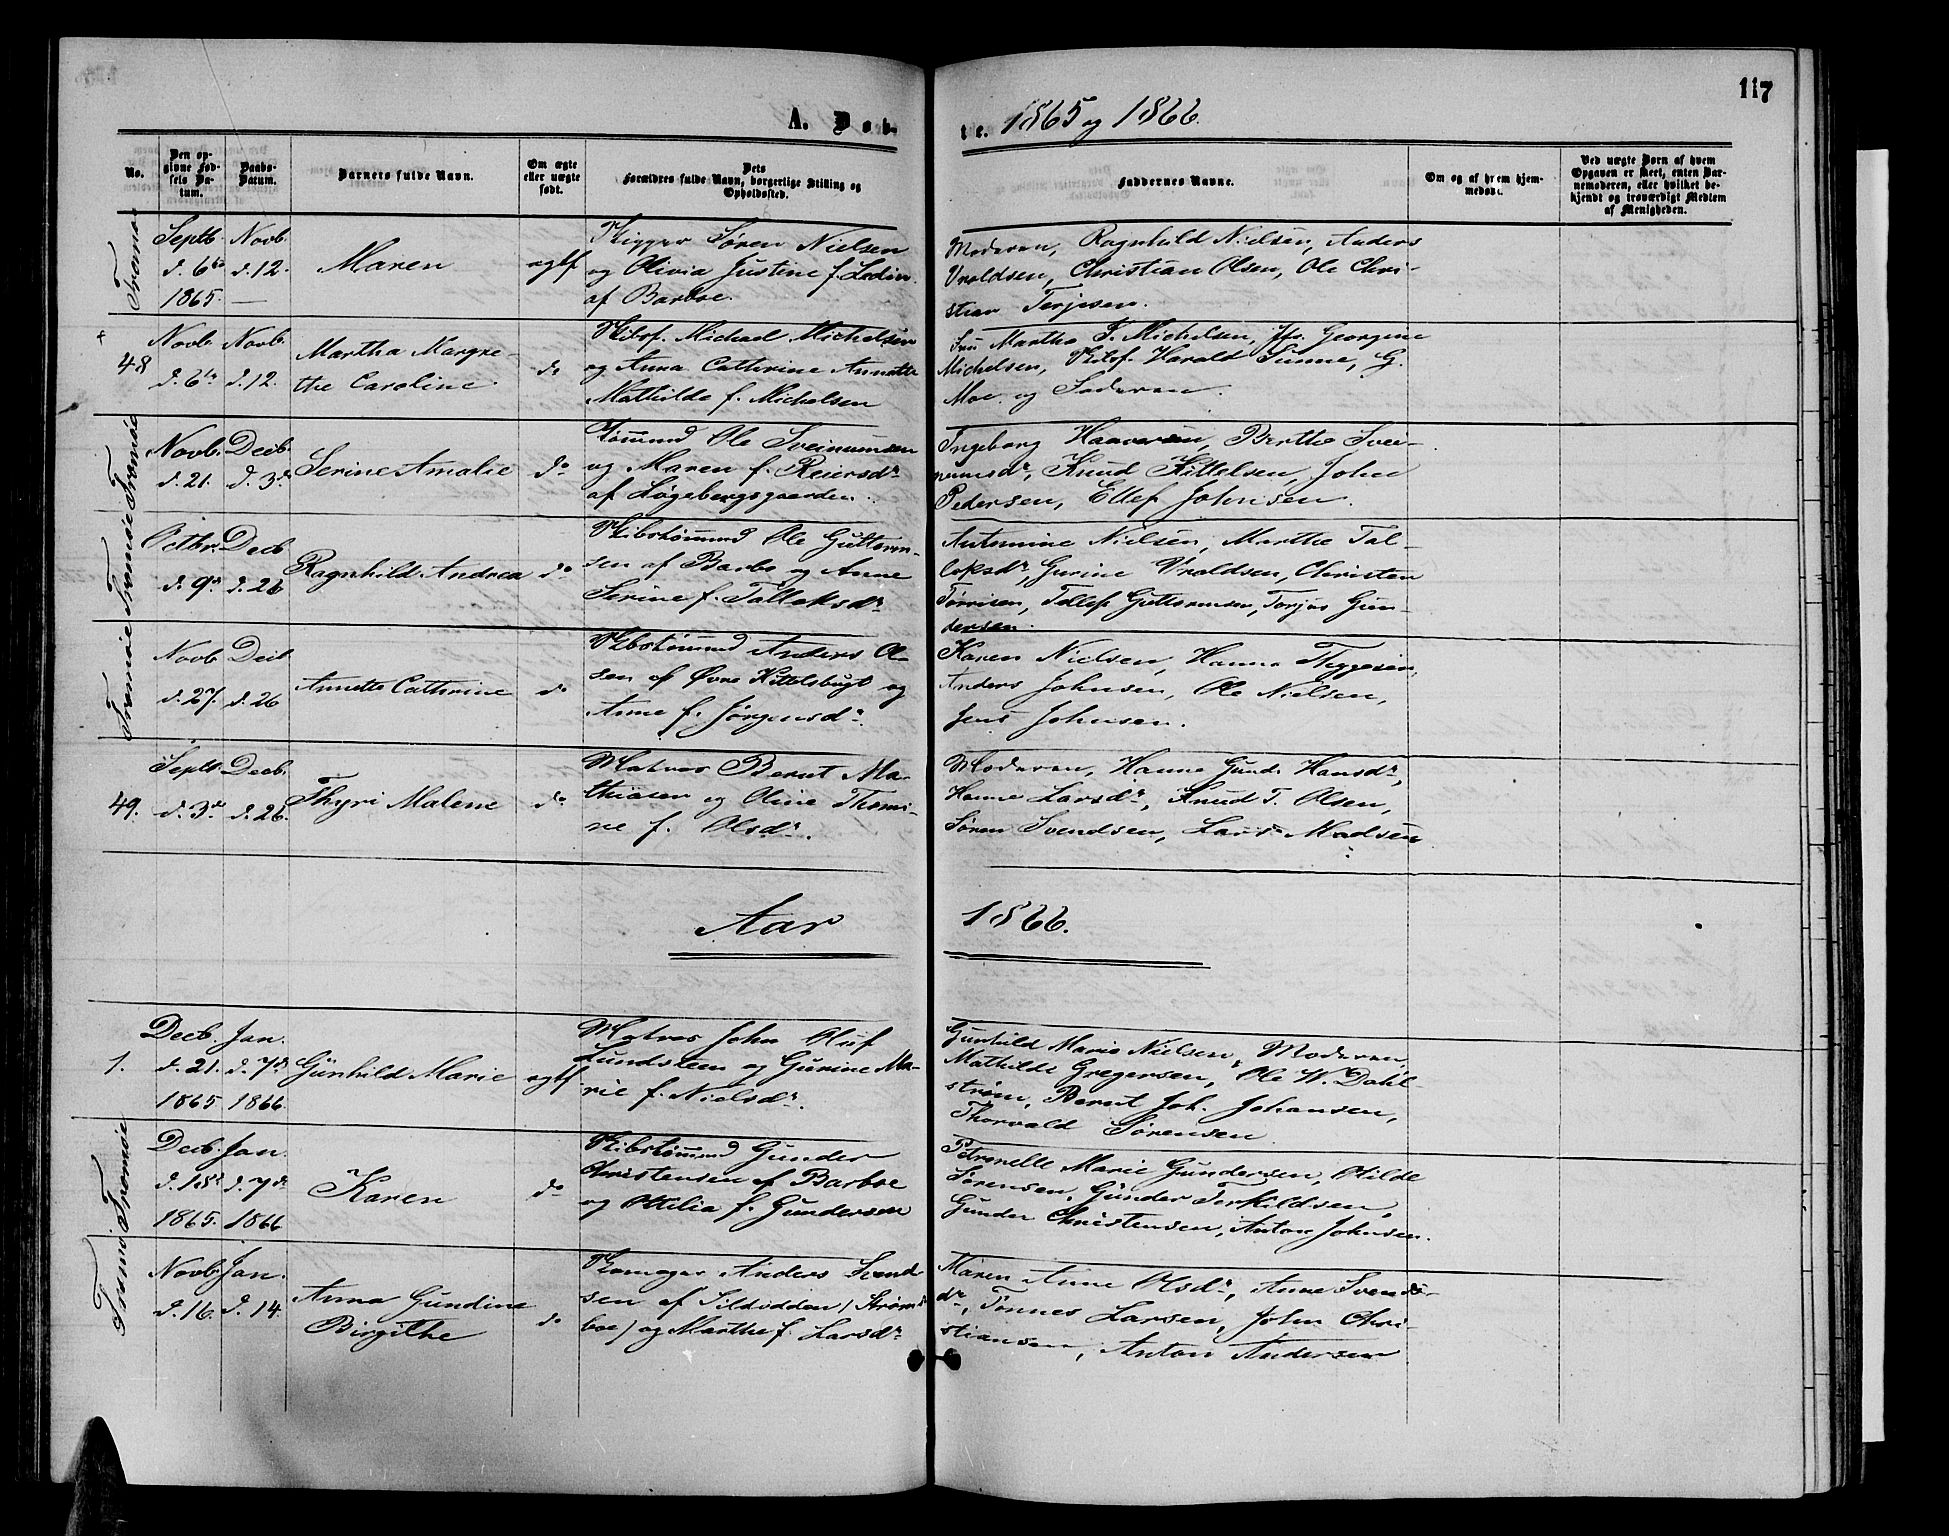 117
A. Døb-
te. 1865 og 1866.
No.
Den op-
givne Fød-
sels Da-
tum.
Daabs-
Datum.
Barnets fulde Navn.
Om ægte
eller uægte
født.
Dets
Forældres fulde Navn, borgerlige Stilling og
Opholdssted.
Faddernes Navne.
Om og af hvem hjem-
medøbt.
Ved uægte Børn af hvem
Opgaven er skeet, enten Bar-
nemoderen, eller hvilket be-
kjendt og troværdigt Medlem
af Menigheden.
Tromøe
Septb.
d. 6te
1865.
Novb.
d. 12.
—
Maren
ægtf
Rigger Søren Nielsen
og Olivia Justine f. Ledin
af Barboe.
Moderen, Ragnhild Nielsen, Anders
Vroldsen, Christian Olsen, Ole Chri-
stian Terjesen.
48
Novb.
d. 6te
Novb.
d. 12.
Martha Margre-
the Caroline.
do
Skibsf. Michael Michelsen
og Anna Cathrine Annette
Mathilde f. Michelsen
Fru Martha F. Michelsen, Jfr. Georgine
Michelsen, Skibsf. Harald Sunne, G.
Moe og Faderen.
Tromøe
Novb.
d. 21.
Decb.
d. 3d
Serine Amalie
do
Tømmd Ole Sveinumsen
og Maren f. Reiersdr
af Løgebergsgaarden.
Ingeborg Haaversen, Berthe Svei-
numsdr, Knud Kittelsen, John
Pedersen, Ellef Johnsen.
Tromøe
Octbr.
d. 9de
Decb
d. 26
Ragnhild Andrea
do
Skibstømmd Ole Guttorm-
sen af Barbo og Anne
Serine f. Talleksdr
Antonine Nielsen, Marthe Tal-
leksdr, Gurine Vroldsen, Christen
Tørrisen, Tellef Guttormsen, Torjus Gun-
dersen.
Tromøe
Novb
d. 27.
Decb
d. 26
Annette Cathrine
do
Skibstømmd Anders Ol-
sen af Øvre Kittelsbugt og
Anne f. Jørgensdr.
Karen Nielsen, Hanna Thygesen,
Anders Johnsen, Ole Nielsen,
Jens Johnsen.
49.
Septb.
d. 3de
Decb.
d. 26.
Thyri Malene
do
Matros Bernt Ma-
thiasen og Oline Thomi-
ne f. Olsdr.
Moderen, Hanne Gund. Hansdr,
Hanne Larsdr, Knud T. Olsen,
Søren Svendsen, Lars Madsen
Aar 1866.
1.
Decb.
d. 21.
1865
Jan.
d. 7de
1866.
Gunhild Marie
ægtf
Matros John Oluf
Lundsteen og Gurine Ma-
rie f. Nielsdr.
Gunhild Marie Nielsen, Moderen,
Mathilde Gregersen, Ole W. Dahl-
strøm, Bernt Joh. Johansen,
Thorvald Sørensen
Tromøe
Decb.
d. 18de
1865.
Jan.
d. 7de
1866
Karen
do
Skibstømmd Gunder
Christensen af Barboe
og Ottilia f. Gundersen
Petronelle Marie Gundersen, Hilde
Sørensen, Gunder Terkildsen,
Gunder Christensen, Anton Johnsen.
Tromø
Novb.
d. 16.
Jan.
d. 14.
Anna Gundine
Birgithe
do
Anders Svend-
sen af Sildodden (Strøms-
boe) og Marthe f. Larsdr
Maren Anne Olsdr, Anne Svends-
dr, Tønnes Larsen, John Chri-
stiansen, Anton Andersen